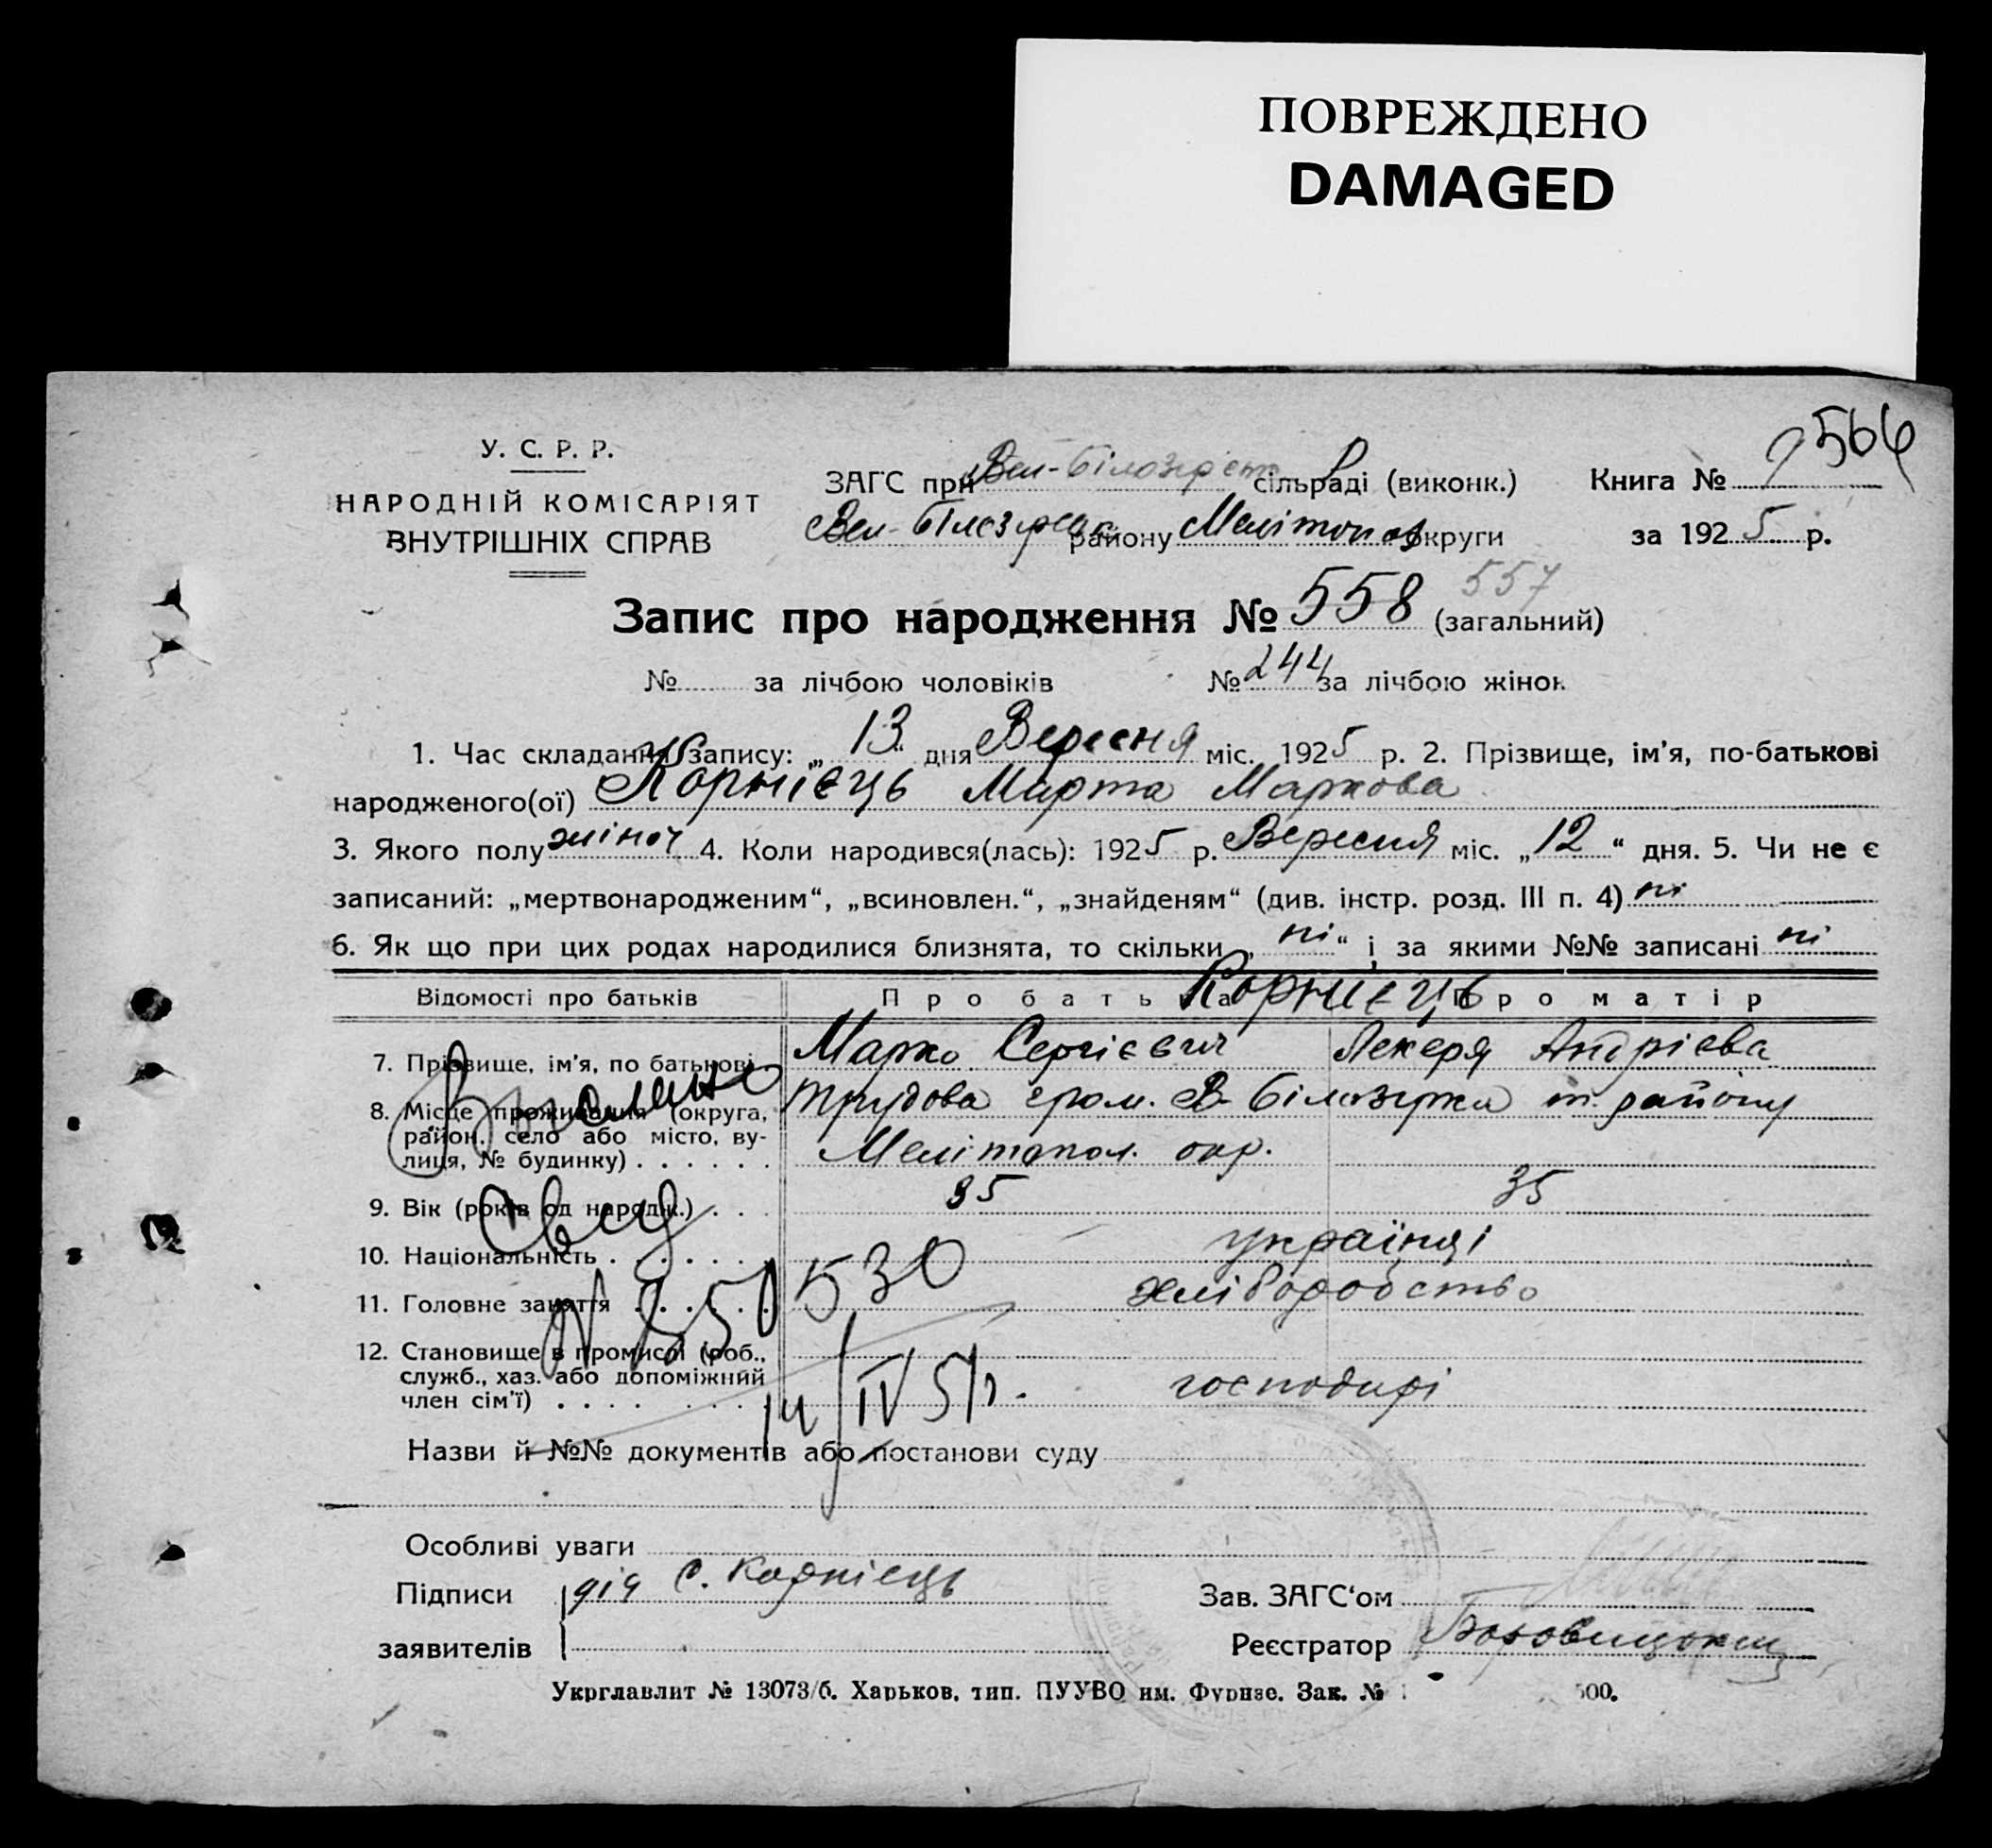 ПОВРЕЖДЕНО
DAMAGED
566
У. С. Р. Р.
НАРОДНІЙ КОМІСАРІЯТ
ВНУТРІШНІХ СПРАВ
ЗАГС при Вел-Білозірськ сільраді (виконк.)
Вел-Білозірськ району Мелітопол округи
Книга №
за 1925 р.
557
Запис про народження № 558 (загальний)
№ за лічбою чоловіків № 244 за лічбою жінок
1. Час складання запису: „13“ дня Вересня міс. 1925 р. 2. Прізвище, ім'я, по-батькові
народженого(ої) Корнієць Марта Маркова
3. Якого полу жіноч 4. Коли народився(лась): 1925 р. Вересня міс. „12“ дня. 5. Чи не є
записаний: „мертвонародженим“, „всиновлен.“, „знайденям“ (див. інстр. розд. III п. 4) ні
6. Як що при цих родах народилися близнята, то скільки „ні“ і за якими №№ записані ні
Відомості про батьків Про батька Про матір
Корнієць
7. Прізвище, ім'я, по батькові Марко Сергієвич Лекеря Андрієва
8. Місце проживання (округа, Трудова гром. В-Білозірка т. району
район, село або місто, ву- Мелітопол. окр.
лиця, № будинку)
9. Вік (років од народж.) 35 35
10. Національність українці
11. Головне заняття хліборобство
530
12. Становище в промислі (роб.,
служб., хаз. або допоміжний господарі
член сім'ї)
14/IV 51г.
Назви й №№ документів або постанови суду
Особливі уваги
Підписи с. Корнієць Зав. ЗАГС'ом
заявителів Реєстратор
Укрглавлит № 13073/б. Харьков, тип. ПУУВО им. Фрунзе. Зак. № 500.